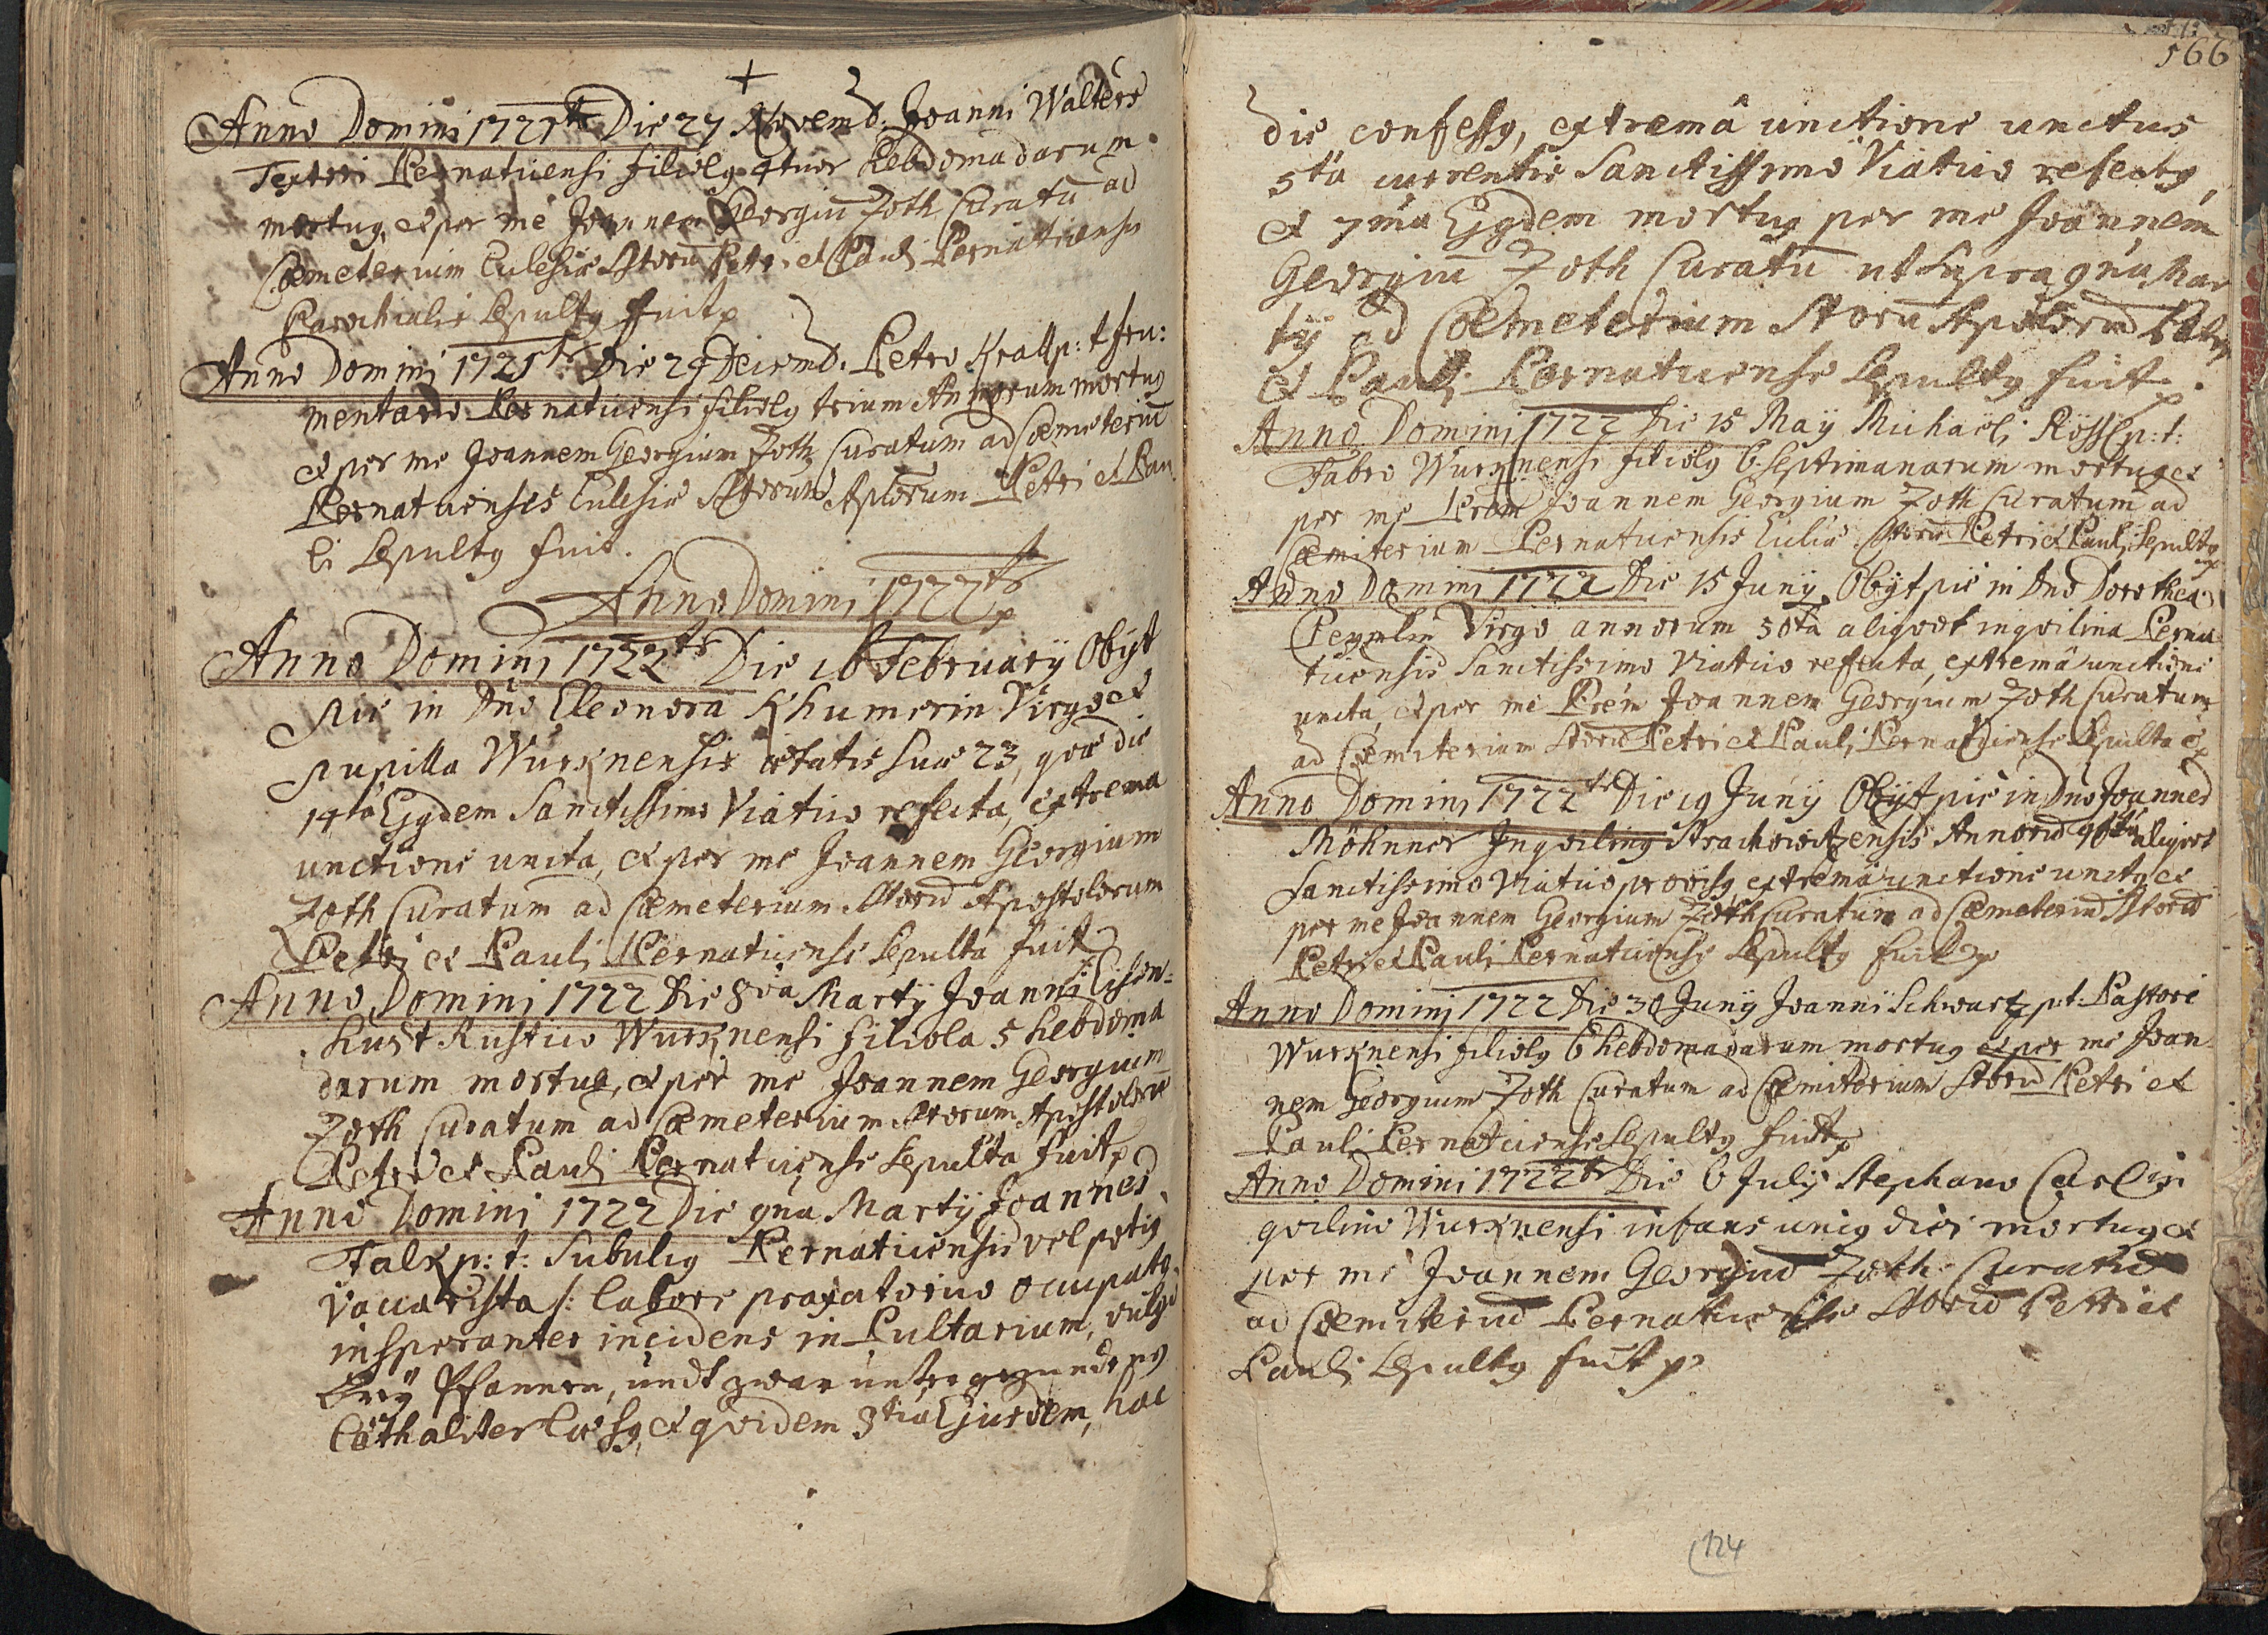 +
Anno Domini 1721te Die 27 Novemb: Joanni Walters
Textori Pernaticensi filiolq 4tuor Hebdomadarum
mortuq, et per me Joannem Georgiu Zoth Curatu ad
Coemeterium Eclesiae SStoru Petri et Pauli Pernaticensis
Parochialis Sepultq fuit
Anno Domini 1721te Die 29 Decemb. Petro Krall p: t fru:
mentario Pernaticensi filiolq trium Annorum mortuq
et per me Joannem Georgium Zoth Curatum ad Coemeteriu
Pernaticenses Eclesiae SStorum Aplorum Petri et Pau
li Sepultq fuit.
Anno Domini 1722te
Anno Domini 1722te Die 16 February Obÿt
pie in Dno Eleonora Khumerin Virgo et
pupilla Wurznensis aetatis suae 23, quae die
14ta Ejqdem Sanctissimo Viatico refecta, extrema
unctione uncta, et per me Joannem Georgium
Zoth Curatum ad Coemeterium SStoru Apostolorum
Petri et Pauli Pernaticense Sepulta fuit
Anno Domini 1722 Die 8va Martÿ Joanni Eisen=
hust Rustico Wurznensi filiola 5 hebdoma
darum mortua, et per me Joannem Georgium
Zoth Curatum ad Coemeterium SStorum Apostoloru
Petri et Pauli Pernaticense Sepulta fuit
Anno Domini 1722 Die 9na Martÿ Joannes
Falk p: t: Subulcq Pernaticensis vel potiq
Vaccarista /: labore praxatorio occupatq
insperanter incidens in Pultarium, vulgo
Breÿ Pfannen, undt zwar untergezundt
Loethaliter laesq, et quidem 3tia Ejusdem, hac
566
die confessq, extremâ unctione unctus
5ta currentis Sanctissimo Viatico refectq,
et 7ma Ejqdem mortuq per me Joannem
Georgiu Zoth Curatu ut Supra 9na Mar
tÿ ad Coemeterium SStoru Apostoloru Petri
et Pauli Pernaticense Sepultq fuit
Anno Domini 1722 Die 15 Maÿ Michaëli Rössl p: t:
Fabro Wurznensi filiolq 6. Septimanarum mortuq et
per me Prem Joannem Georgium Zoth Curatum ad
Caemiterium Pernaticensis Ecliae SStoru Petri et Pauli Sepultq
Anno Domini 1722 Die 15 Junÿ Obÿt pie in Dno Dorothea
Peyzlin Virgo annorum 50ta aliqvot inqvilina Perna
ticensis Sanctissimo Viatico refecta, extremâ unctione
uncta, et per me Prem Joannem Georgium Zoth Curatum
ad Caemiterium SStoru Petri et Pauli Pernaticense Sepulta e
Anno Domini 1722te Die 19 Junÿ Obÿt pie in Dno Joannes
Möhnner Inqvilinq Strachowitzensis Annoru 90ta aliqvot
Sanctissimo Viatico provisq extremâ unctione unctq et
per me Joannem Georgium Zoth Curatum ad Caemeteriu SStoru
Petri et Pauli Pernaticense Sepultq fuit
Anno Domini 1722 Die 30 Junÿ Joanni Schwartz p: t: Pastore
Wurznensi filiolq 6 hebdomadarum mortuq et per me Joan
nem Georgium Zoth Curatum ad Caemiterium SStoru Petri et
Pauli Pernaticense Sepultq fuit
Anno Domini 1722te Die 6 Julÿ Stephano Carl in
qvilino Wurznensi infans uniq diei mortuq et
per me Joannem Georgiu Zoth Curatu
ad Caemiteriu Pernaticense SStoru Petri et
Pauli Sepultq fuit
124